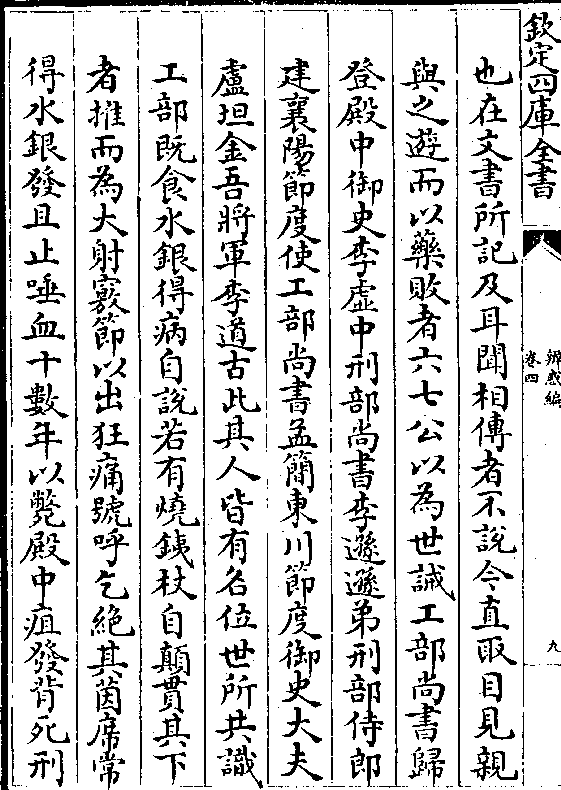 欽定四庫全書
辨惑編
卷四
九
也在文書所記及耳聞相傳者不說今直取目見親
與之遊而以藥敗者六七公以為世誡工部尚書歸
登殿中御史李虛中刑部尚書李遜遜弟刑部侍郎
建襄陽節度使工部尚書孟簡東川節度御史大夫
盧坦金吾將軍李道古此其人皆有名位世所共識
工部既食水銀得病自說若有燒鐵杖自顛貫其下
者摧而為大射竅節以出狂痛號呼乞絕其茵席常
得水銀發且止唾血十數年以斃殿中疽發背死刑